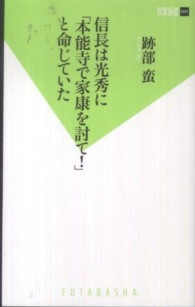 双葉新書
信長は光秀に
「本能寺で家康を討て！」
と命じていた
跡部 蛮
FUTABASHA